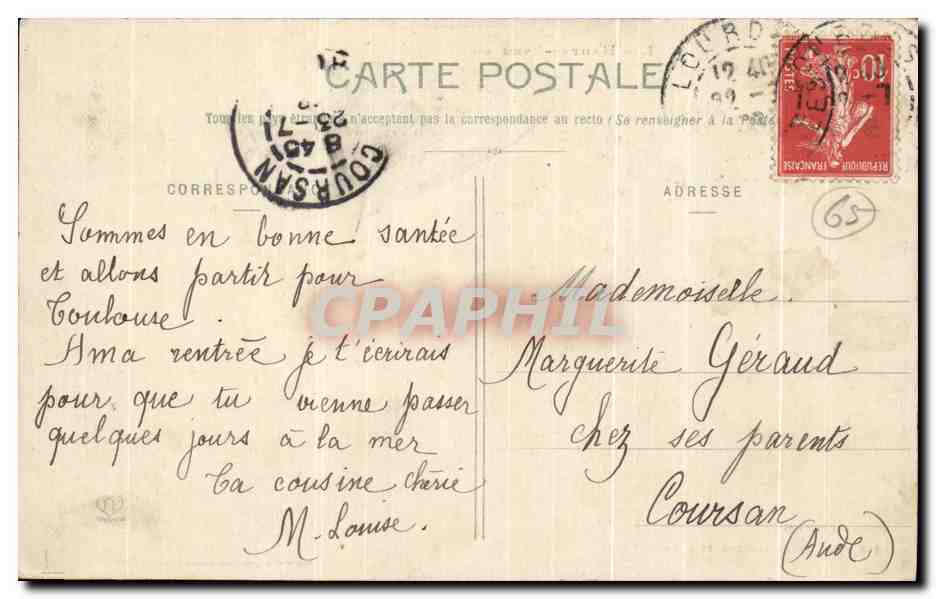 CARTE POSTALE
Tous les pays étrangers n'acceptent pas la correspondance au recto (Se renseigner à la Poste
CORRESPONDANCE
ADRESSE
COURSAN
8 45
23 - 7
LOURDES
12 40
22
10
POSTES
REPUBLIQUE FRANÇAISE
65
Sommes en bonne santée
et allons partir pour
Toulouse.
A ma rentrée je t'écrirais
pour que tu vienne passer
quelques jours à la mer
Ta cousine chérie
M. Louise.
Mademoiselle.
Marguerite Géraud
chez ses parents
Coursan
(Aude)
CPAPHIL